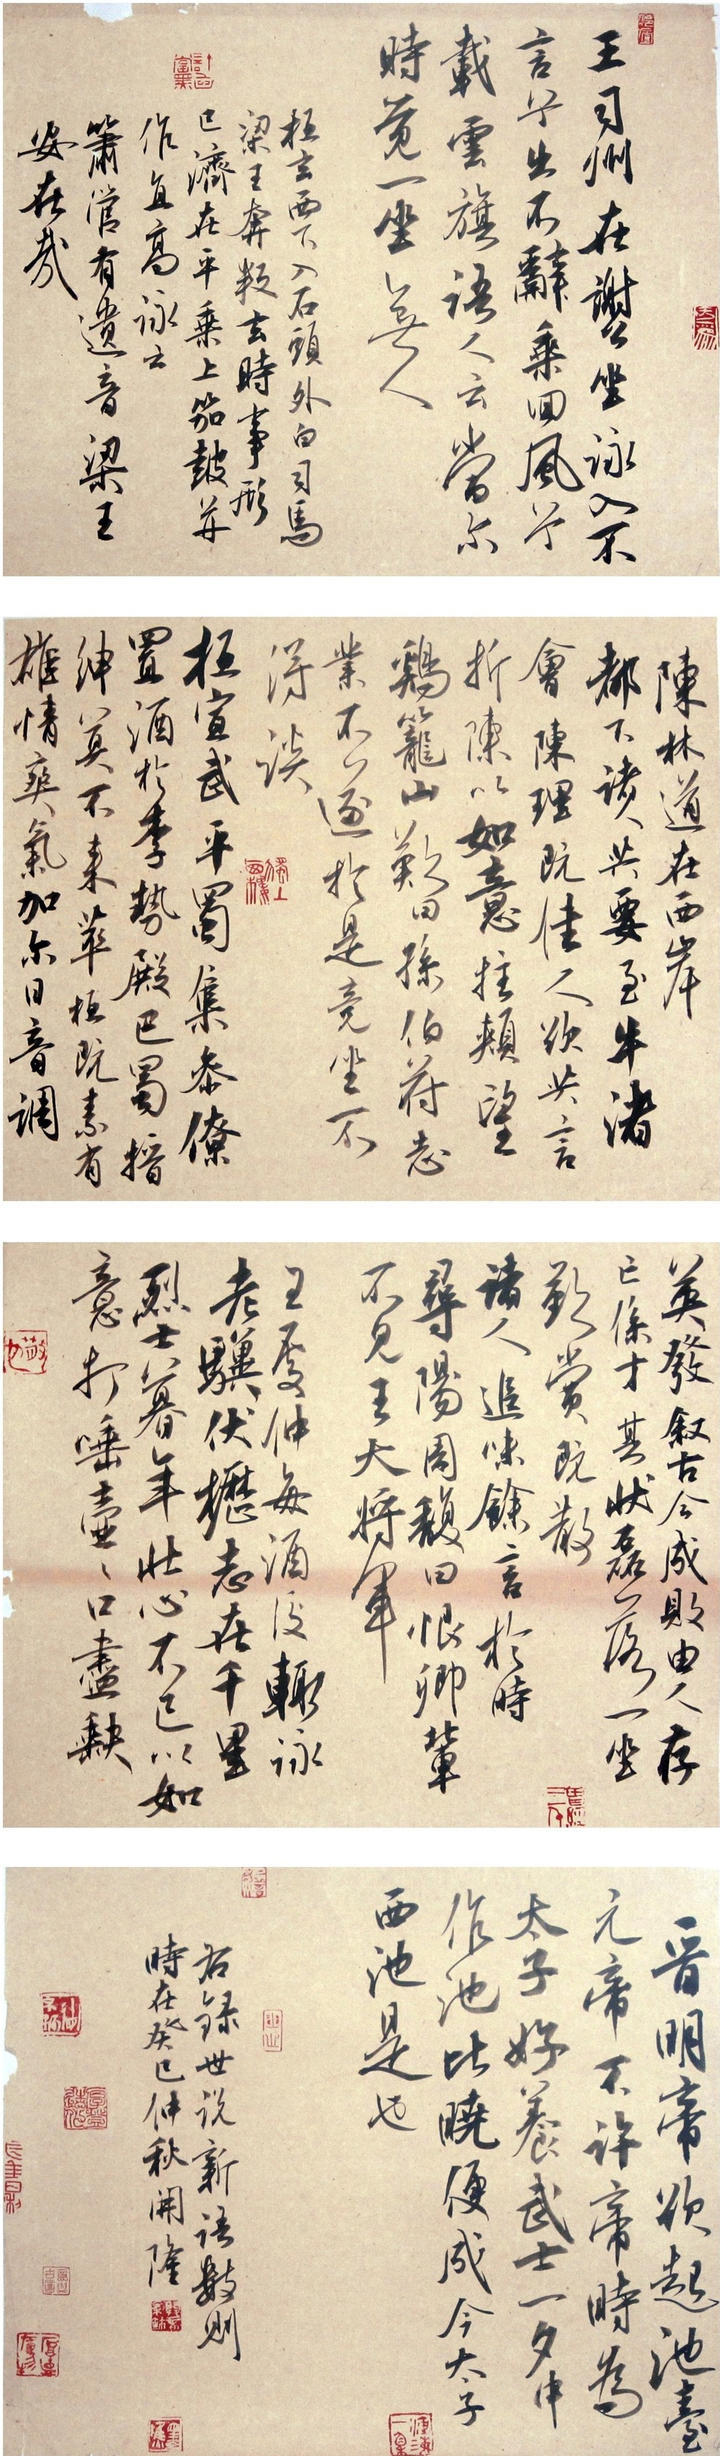 王司州在謝公坐詠入不
言兮出不辭乘回風兮
載雲旗語人云當爾
時覺一坐無人
桓玄西下入石頭外白司馬
梁王奔叛玄時事形
已濟在平乘上笳鼓並
作直高詠云
簫管有遺音梁王
安在哉
陳林道在西岸
都下諸人共要至牛渚
會陳理既佳人欲共言
折陳以如意拄頰望
鷄籠山歎曰孫伯符志
業不遂於是竟坐不
得談
桓宣武平蜀集參僚
置酒於李勢殿巴蜀搢
紳莫不來萃桓既素有
雄情爽氣加爾日音調
英發叙古今成敗由人存
亡係才其狀磊落一坐
歎賞既散
諸人追味餘言於時
尋陽周馥曰恨卿輩
不見王大將軍
王處仲每酒後輒詠
老驥伏櫪志在千里
烈士暮年壯心不已以如
意打唾壺壺口盡缺
晋明帝欲起池臺
元帝不許帝時為
太子好養武士一夕中
作池比曉便成今太子
西池是也
右録世说新語數則
時在癸巳仲秋開隆